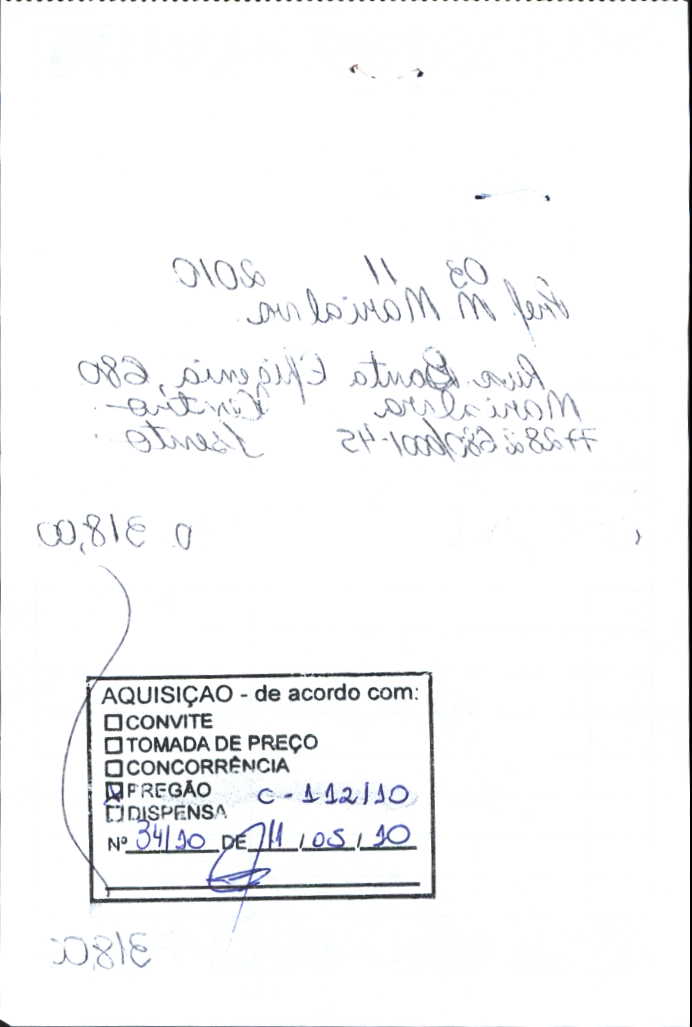 03 11 2010
Pref M Marialva
Rua Santa Efigenia, 680
Marialva
Isento
318,00
AQUISIÇAO - de acordo com:
CONVITE
TOMADA DE PREÇO
CONCORRÊNCIA
PREGÃO C - 112/10
DISPENSA
Nº 34/10 DE 11 / 05 / 10
318,00